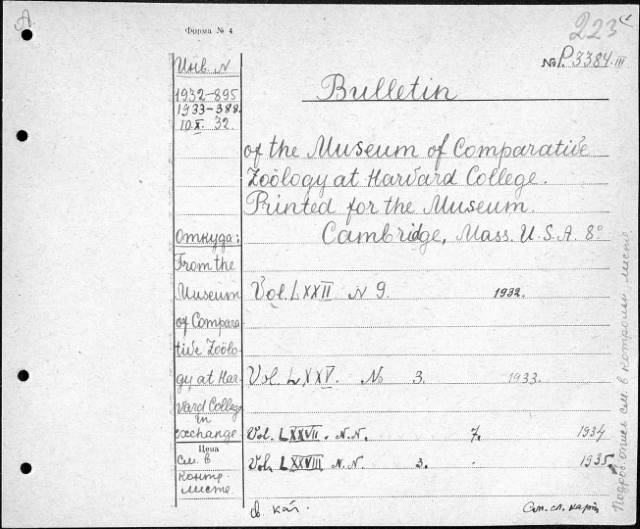 А
Форма № 4
223
№ P.3384.III
Инв. N
1932-895
1933-388.
10.X. 32.
Bulletin
of the Museum of Comparative
Zoölogy at Harvard College.
Printed for the Museum.
Cambridge, Mass. U.S.A. 8°
Откуда:
From the
Museum
of Compara-
tive Zoölo-
gy at Har-
vard College
in
exchange
Vol. LXXII N 9. 1932.
Vol. LXXV. No 3. 1933.
Vol. LXXVII. N.N. 7. 1934
Vol. LXXVIII N.N. 3. - 1935
Цена
см. в
контр.
листе
в. кат.
См. сл. карт.
Подроб. опись см. в контрольн. листе